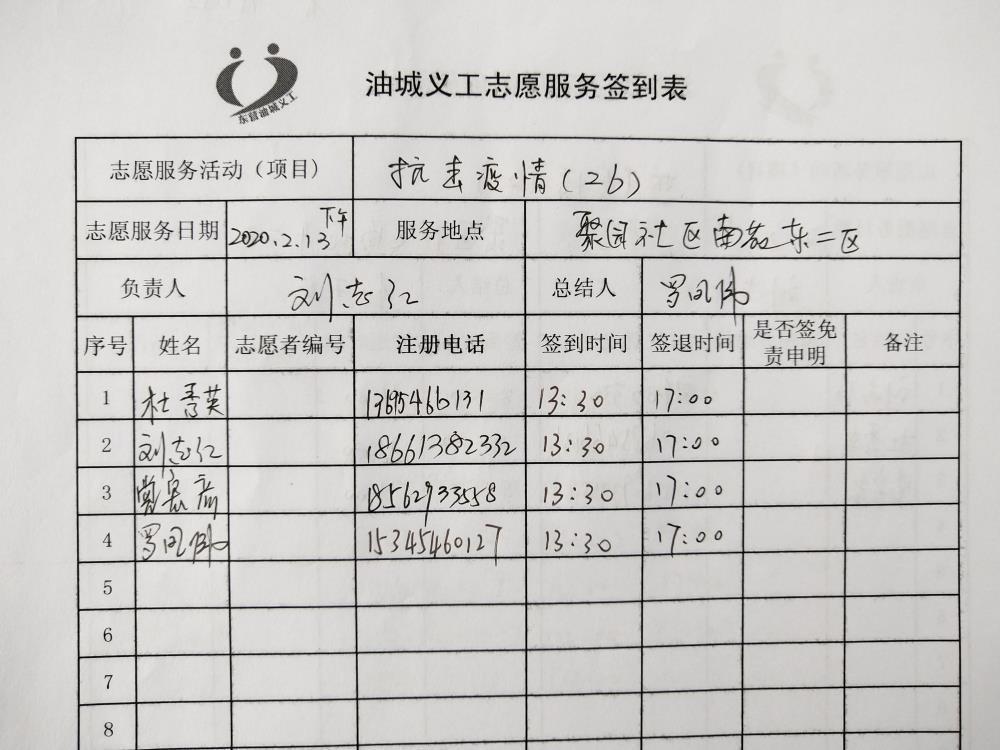 东营油城义工
油城义工志愿服务签到表
志愿服务活动（项目） 抗击疫情（26）
志愿服务日期 2020.2.13下午 服务地点 聚园社区南苑东二区
负责人 刘志红 总结人 罗凤伟
序号 姓名 志愿者编号 注册电话 签到时间 签退时间 是否签免责申明 备注
1 杜秀英 13695466131 13:30 17:00
2 刘志红 18661382332 13:30 17:00
3 18562933558 13:30 17:00
4 罗凤伟 15345460127 13:30 17:00
5
6
7
8